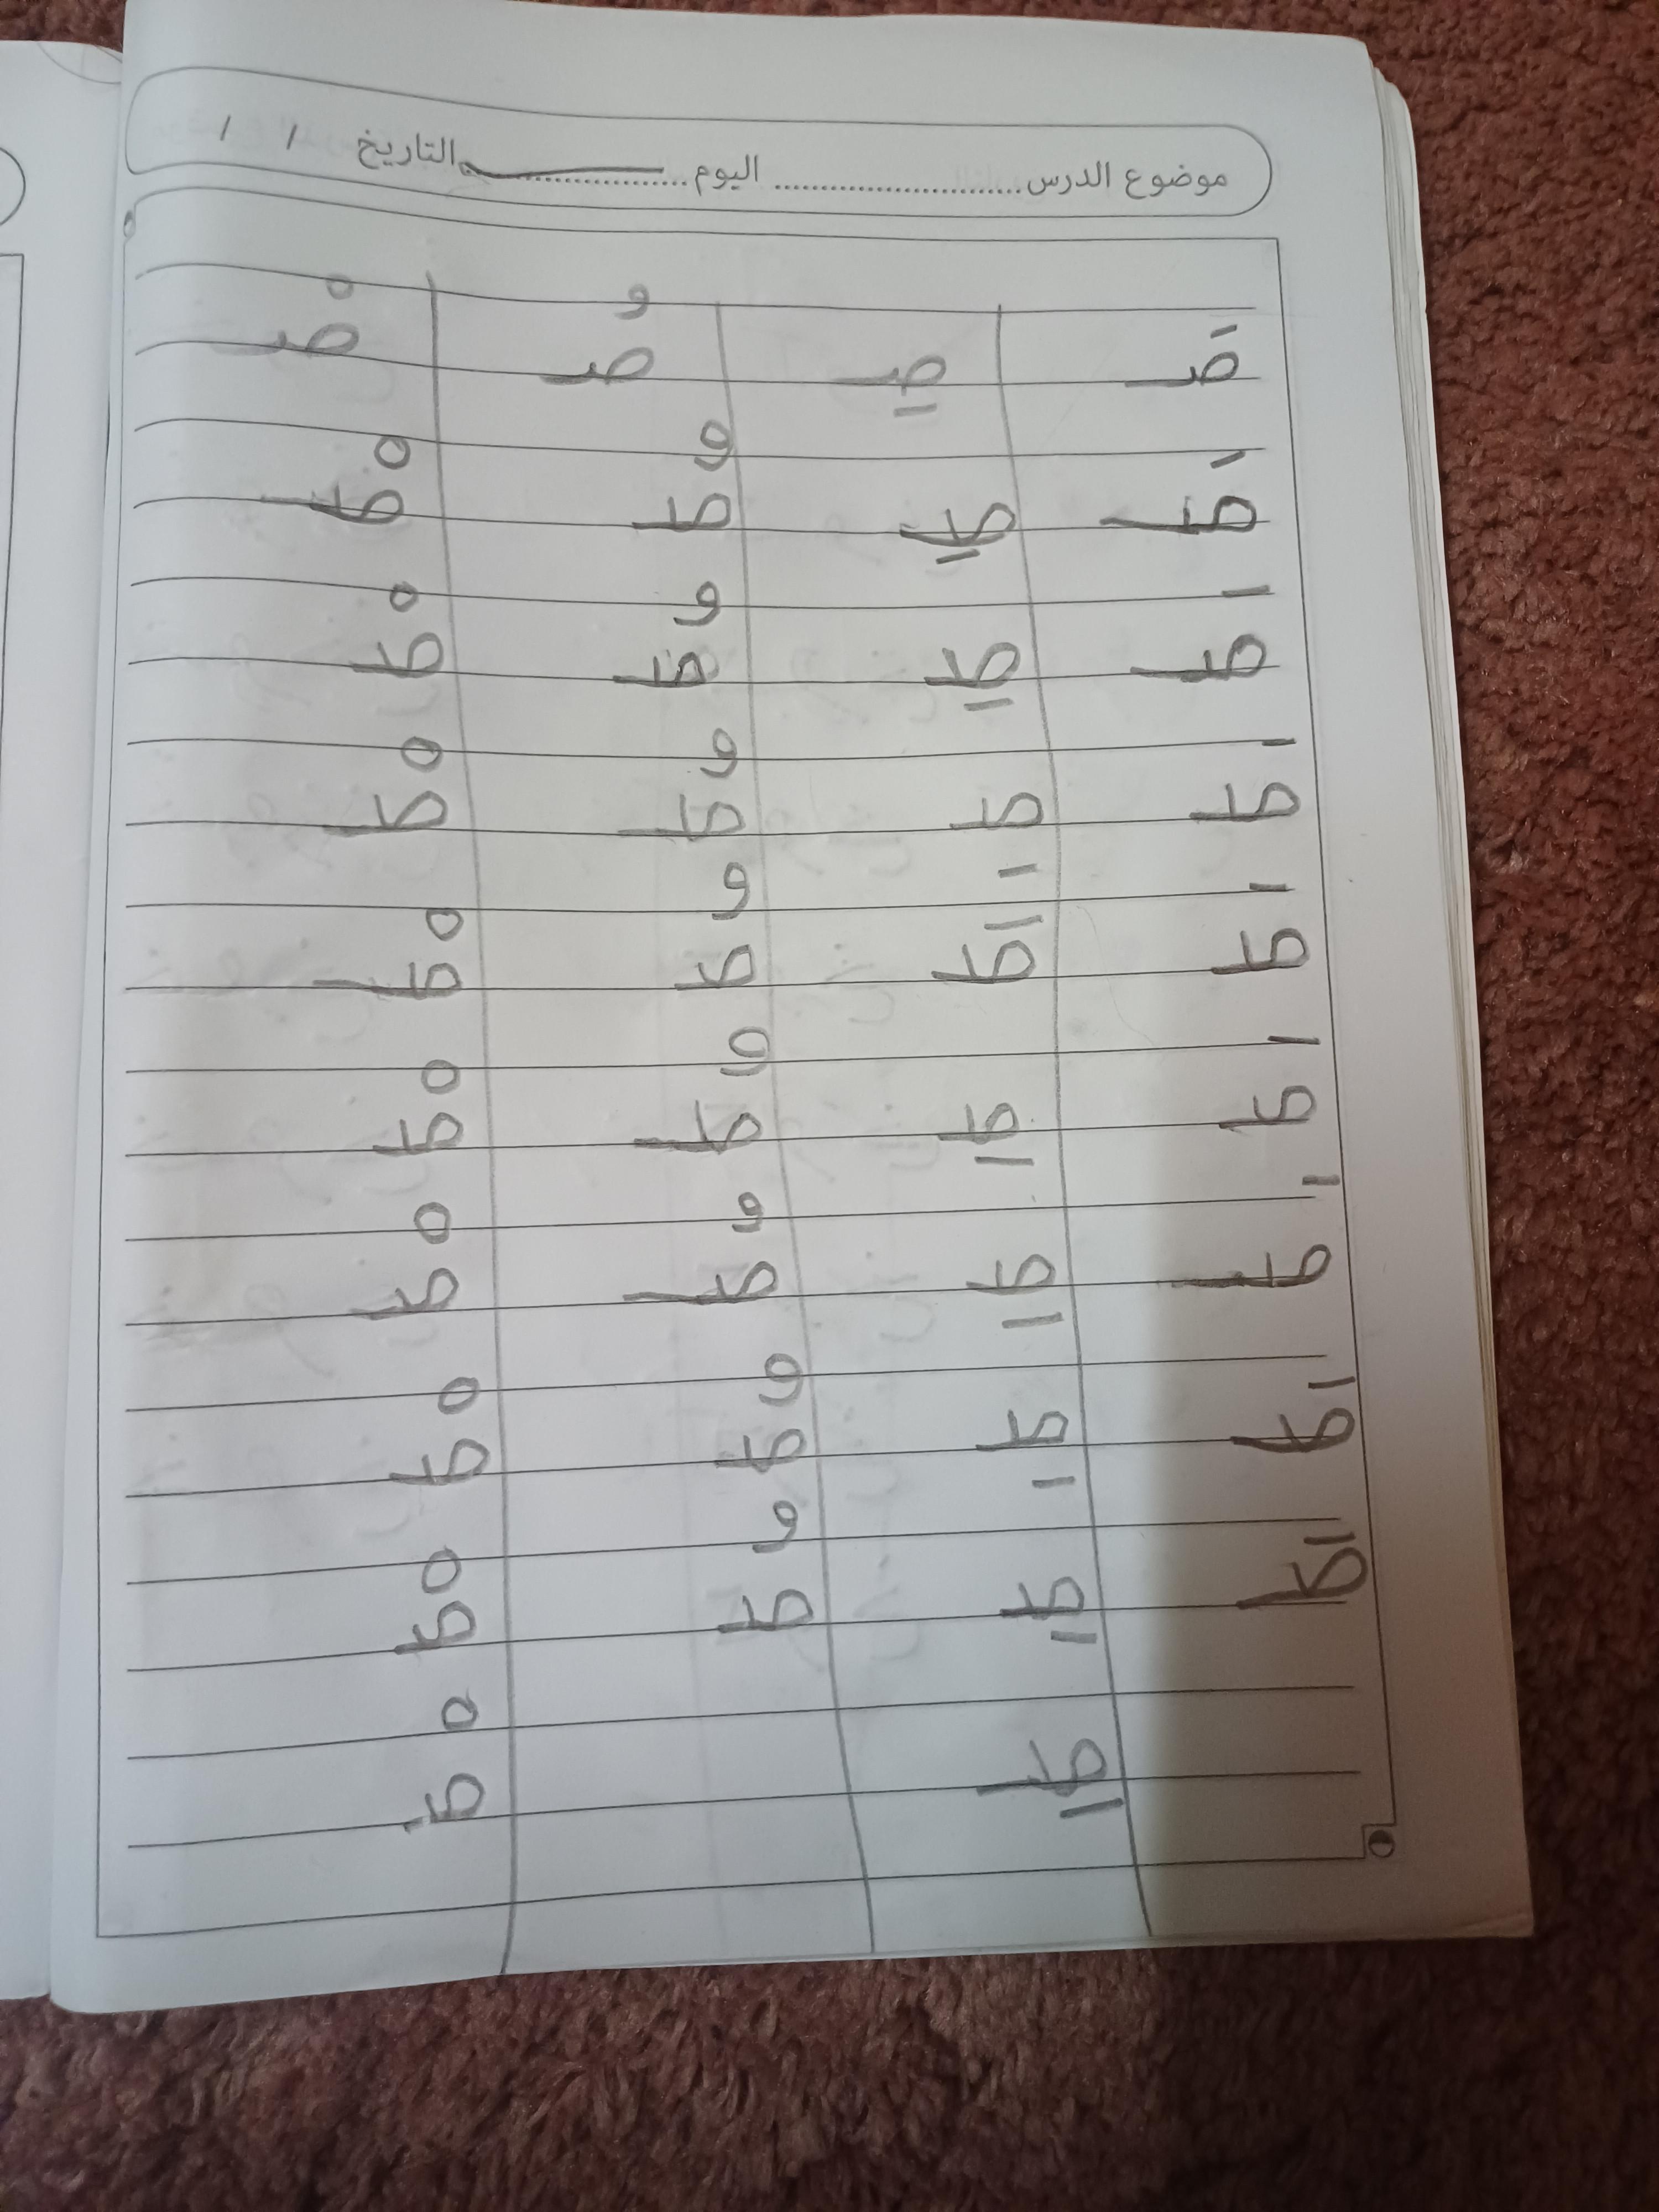 موضوع الدرس ........................ اليوم .............. التاريخ / /
صَـ صِـ صُـ صْـ
صَـ صِـ صُـ صْـ
صَـ صِـ صُـ صْـ
صَـ صِـ صُـ صْـ
صَـ صَـ صُـ صْـ
صَـ صِـ صُـ صْـ
صَـ صِـ صُـ صْـ
صَـ صِـ صُـ صْـ
صَـ صِـ صُـ صْـ
صِـ صْـ